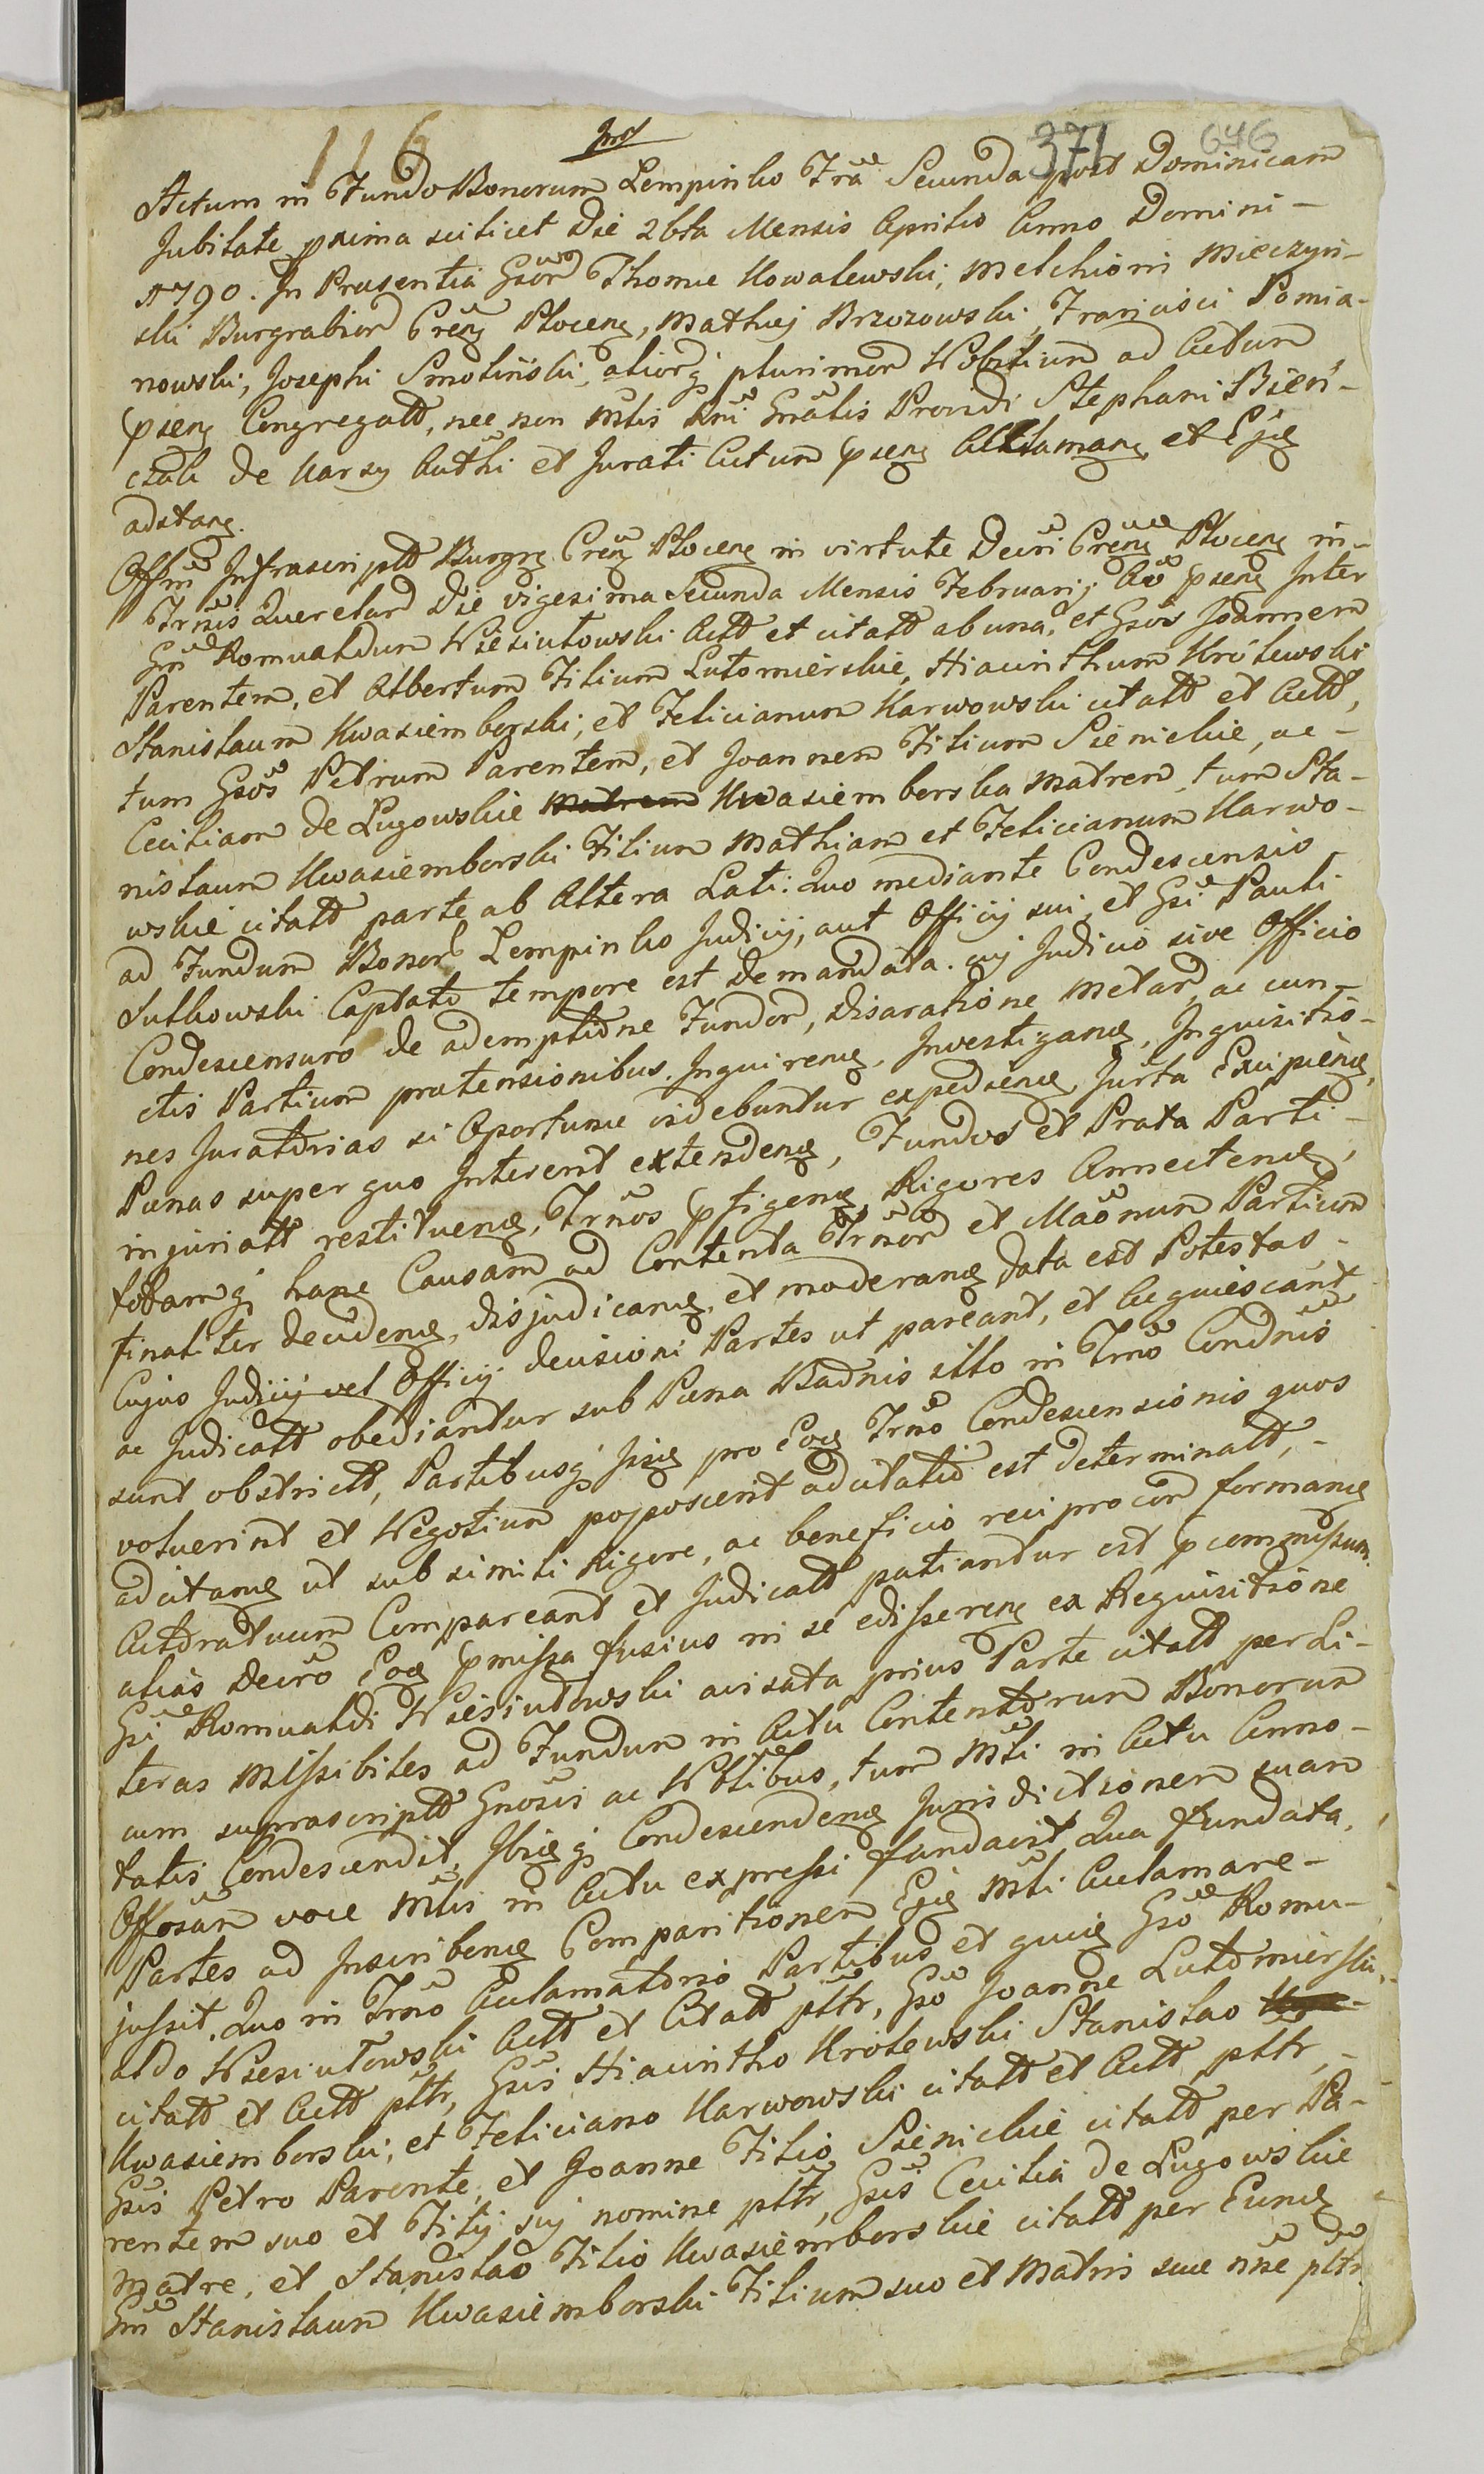 116 371 646
Actum in Fundo Bonorum Lempinko Fra Secunda post Dominicam
Jubilate proxima scilicet Die 26ta Mensis Aprilis Anno Domini
1790. In Præsentia Gsor Thomæ Kowalewski, Melchioni Mieczyn-
ski Burgrabior Cren Plocen, Mathej Brzozowski, Francisci Pomia-
nowski, Josephi Smoliński, aliorq plurimor Nobilium ad Actum
psens Congregatt, nec non Mlis Rni Gnalis Providi Stephani Bień-
czak de Karsy Authi et Jurati Actum psens Acclamans et Ejq
adstans.
Offm Infrascriptt Burgr Cren Plocen in virtute Decri Cren Plocen in
Trnis Querelar Die vigesima Secunda Mensis Februarij Ao psens Inter
Gm Romualdum Wsesiutowski Actt et citatt ab una, et Gsos Joannem
Parentem, et Albertum Filium Lutomierskie, Hiacinthum Królewski
Stanislaum Kwasiemborski, et Felicianum Karwowski citatt et Actt,
tum Gsos Petrum Parentem, et Joannem Filium Sienickie, ac
Ceciliam de Lugowskie Matrem Kwasiemborska Matrem, tum Sta-
nislaum Kwasiemborski Filium Mathiam et Felicianum Karwo-
wskie citatt parte ab Altera Lati: Quo mediante Condescensio
ad Fundum Bonor Lempinko Judicij, aut Officij sui et Gsi Pauli
Sutkowski Captato tempore est Demandata. cuj Judicio sive Officio
Condescensuro de ademptione Fundor, disaratione Metar, ac cun-
ctis Partium prætensionibus. Inquirens, Investigans, Inquisitio-
nes Juratorias si Oportunæ videbuntur expediens, Jurta Excipiens,
Pænas super quo Interent extendens, Fundos et Prata Parti-
injuriatt restituens, Trnos pfigens, Rigores Annectens,
totamq hanc Causam ad Contenta Trnor et Maonum Partium
finaliter decidens, disjudicans, et moderans data est Potestas
Cujus Judicij vel Officij decisioni Partes ut pareant, et Acquiescant
ac Judicatt obediantur sub Pæna Badnis illo in Trno Condnis
sunt obstrictt, Partibusq Jisq pro Eoq Trno Condescensionis quos
voluerint et Negotium poposcerit adcitatio est determinatt,
adcitans ut sub simili Rigore, ac beneficio reciprocor formans
Actoratuum Compareant et Judicatt patiantur est pcommissum.
alias decro Eoq pmissa fusius in se edisserens ex Requisitione
Gsi Romualdi Wsesiutowski avisata prius Parte citatt per Li-
teras Missibiles ad Fundum in Actu Contentorum Bonorum
cum suprascriptt Gnosis ac Nobilibus, tum Mli in Actu Anno-
tatis Condescendit, Ibiq q Condescendens Jurisdictionem suam
Offosam voce Mlis in Actu expressi fundavit, Qua fundata,
Partes ad Inscribens Comparitionem Ejq Mli Acclamare
jussit, Quo in Trno Acclamatorio Partibus et quiq Gso Romu-
aldo Wsesiutowski Actt et Citatt pttr, Gso Joanne Lutomierski,
citatt et Actt pttr, Gsis Hiacintho Krolewski Stanislao
Kwasiemborski, et Feliciano Karwowski citatt et Actt pttr,
Gsis Petro Parente, et Joanne Filio Sienickie citatt per Pa-
rentem suo et Filij sui nomine pttr, Gsis Cecilia de Lugowskie
Matre, et Stanislao Filio Kwasiemborskie citatt per Eund
Gm Stanislaum Kwasiemborski Filium suo et Matris suæ nne pttr.